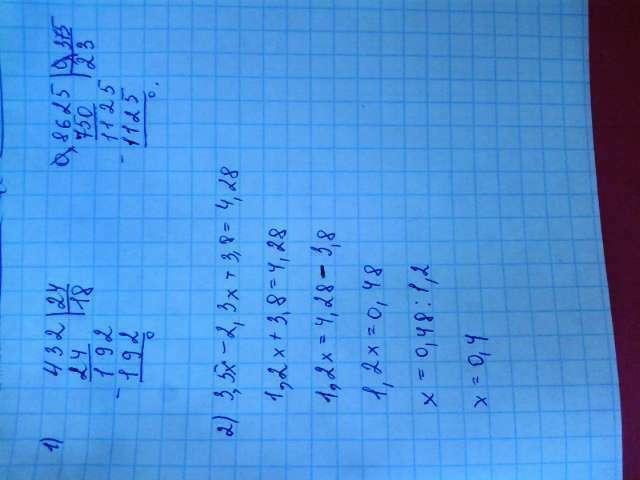 1) 432 |24
24 |18
192
- 192
0
0,8625 |0,375
750 |23
1125
- 1125
0.
2) 3,5x - 2,3x + 3,8 = 4,28
1,2x + 3,8 = 4,28
1,2x = 4,28 - 3,8
1,2x = 0,48
x = 0,48 : 1,2
x = 0,4